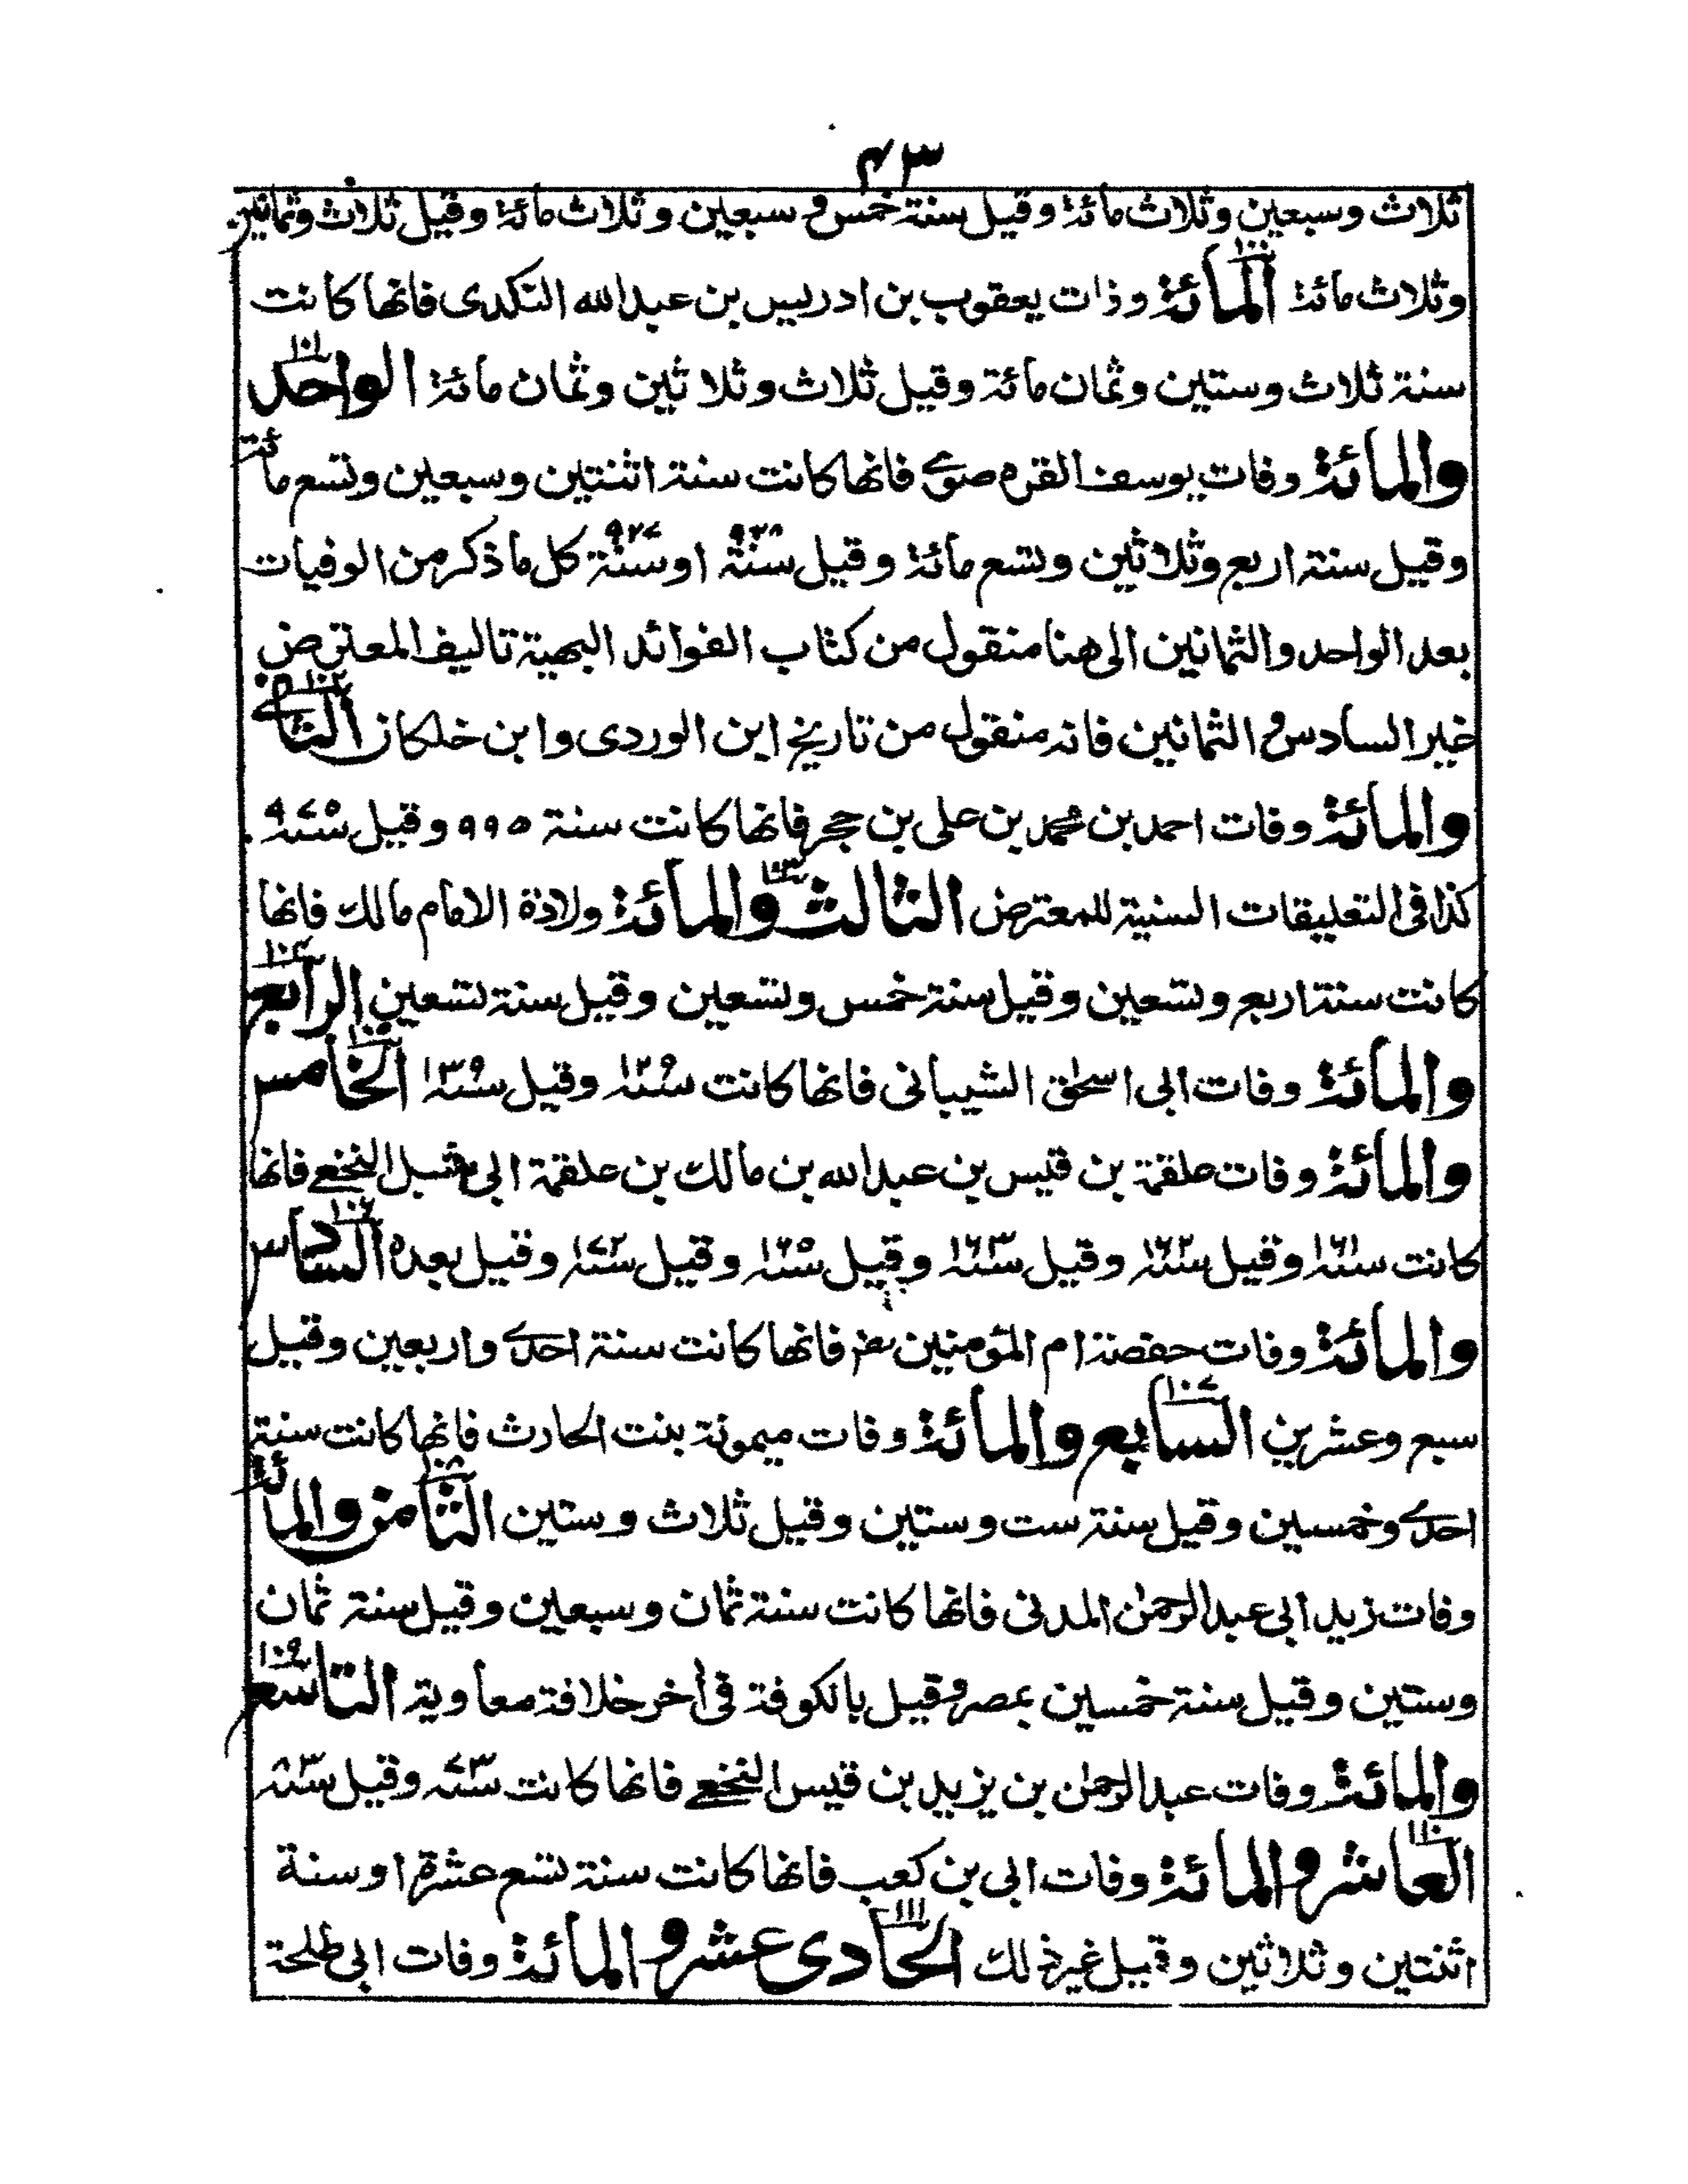 ٤٣
ثلاث وسبعين وثلاث مائة وقيل سنة خمس و سبعين و ثلاث مائة وقيل ثلاث وثمانين
وثلاث مائة المائة وفات يعقوب بن ادريس بن عبدالله النكدى فانها كانت
سنة ثلاث وستين وثمان مائة وقيل ثلاث وثلاثين وثمان مائة الواحد
والمائة وفات يوسف القره صوى فانها كانت سنة اثنتين وسبعين وتسع مائة
وقيل سنة اربع وثلاثين وتسع مائة وقيل سنة ٩٣٨ او سنة ٩٢٧ كل ما ذكر من الوفيات
بعد الواحد والثمانين الى هنا منقول من كتاب الفوائد البهية تاليف المعترض
غير السادس والثمانين فانه منقول من تاريخ ابن الوردى وابن خلكان الثانى
والمائة وفات احمد بن محمد بن على بن حجر فانها كانت سنة ٩٩٥ وقيل سنة ٩٧٥
كذا فى التعليقات السنية للمعترض الثالث والمائة ولادة الامام مالك فانها
كانت سنة اربع وتسعين وقيل سنة خمس وتسعين وقيل سنة تسعين الرابع
والمائة وفات ابى اسحٰق الشيبانى فانها كانت سنة ١٢٩ وقيل سنة ١٣٩ الخامس
والمائة وفات علقمة بن قيس بن عبدالله بن مالك بن علقمة ابى شبل النخعى فانها
كانت سنة ٦١ وقيل سنة ٦٢ وقيل سنة ٦٣ وقيل سنة ٦٥ وقيل سنة ٧٢ وقيل بعده السادس
والمائة وفات حفصة ام المؤمنين رض فانها كانت سنة احدى واربعين وقيل
سبع وعشرين السابع والمائة وفات ميمونة بنت الحارث فانها كانت سنة
احدى وخمسين وقيل سنة ست وستين وقيل ثلاث وستين الثامن والمائة
وفات زيد ابى عبدالرحمٰن المدنى فانها كانت سنة ثمان وسبعين وقيل سنة ثمان
وستين وقيل سنة خمسين بمصر وقيل بالكوفة فى أخر خلافة معاوية التاسع
والمائة وفات عبدالرحمٰن بن يزيد بن قيس النخعى فانها كانت سنة ٧٣ وقيل سنة ٨٣
العاشر والمائة وفات ابى بن كعب فانها كانت سنة تسع عشرة او سنة
اثنتين وثلاثين وقيل غير ذلك الحادى عشر والمائة وفات ابى طلحة